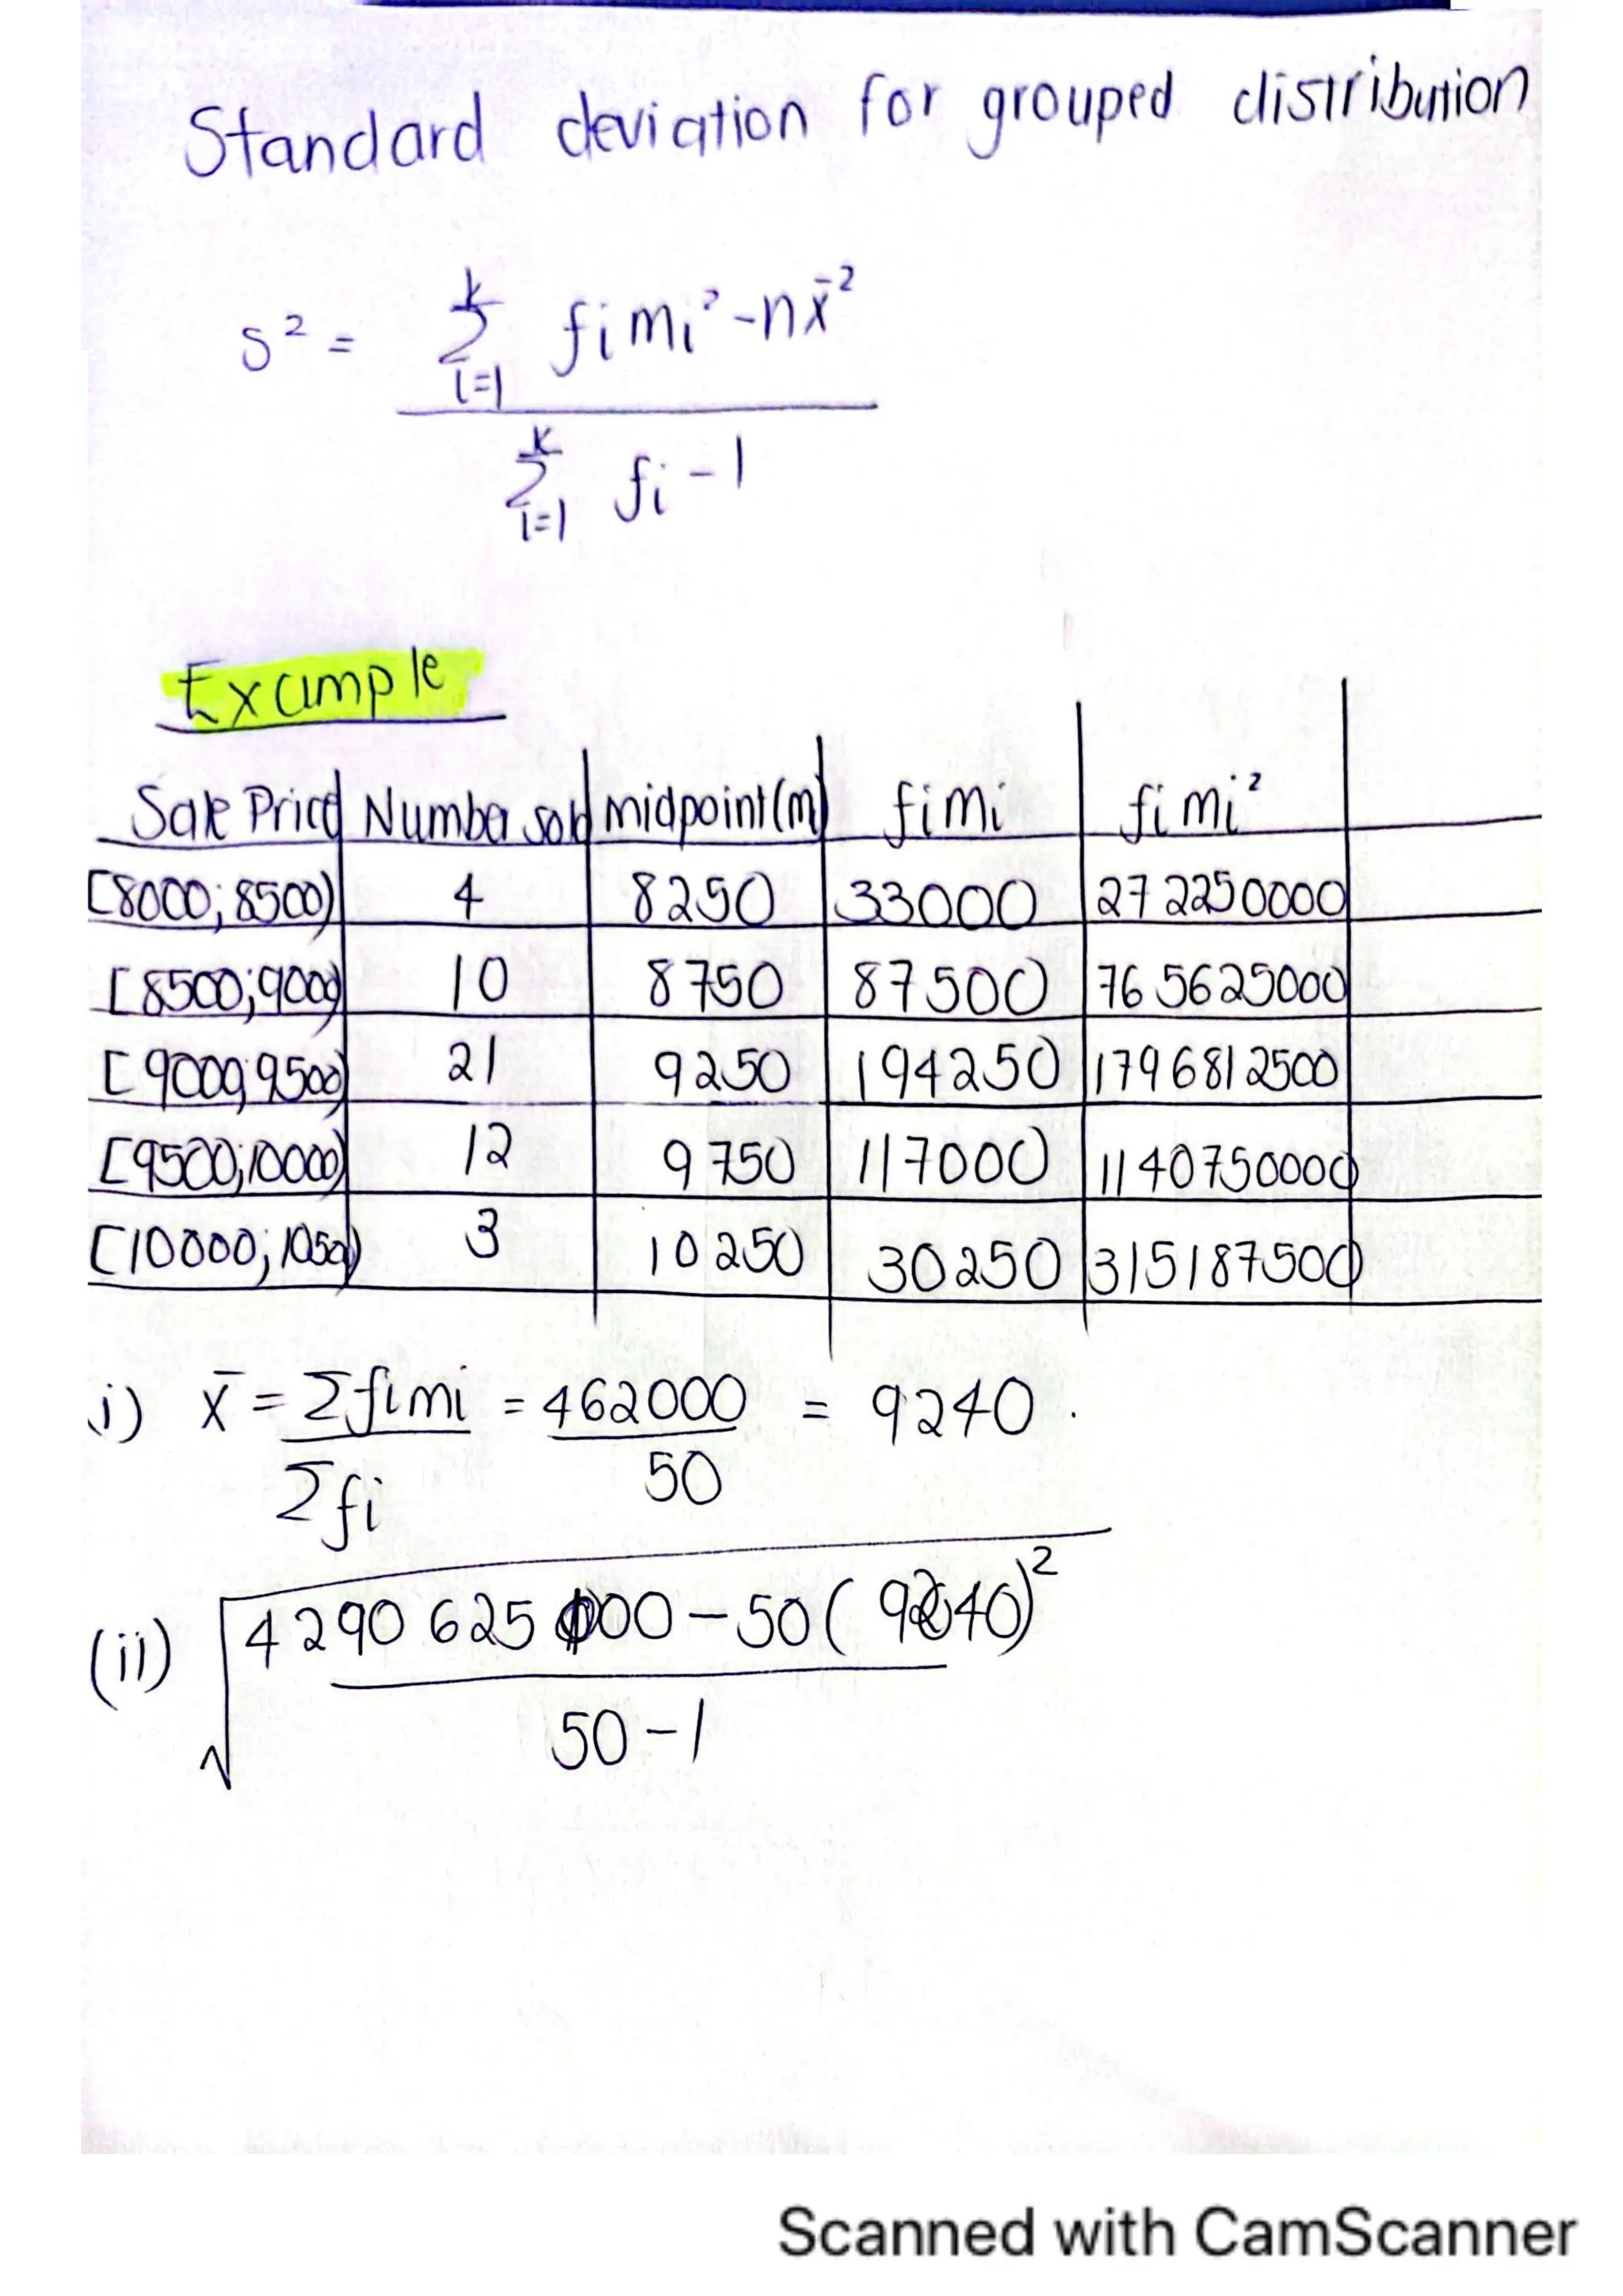 Standard deviation for grouped distribution
s² = 
k
Σ fimi² - nx̄²
i=1
k
Σ fi - 1
i=1
Example
Sale Price Number sold midpoint(m) fimi fimi²
[8000; 8500) 4 8250 33000 272250000
[8500; 9000) 10 8750 87500 765625000
[9000; 9500) 21 9250 194250 1796812500
[9500; 10000) 12 9750 117000 1140750000
[10000; 1050) 3 10250 30250 315187500
i) x̄ = Σfimi = 462000 = 9240.
Σfi 50
(ii) √ 4290 625 000 - 50( 9240)²
50 - 1
Scanned with CamScanner